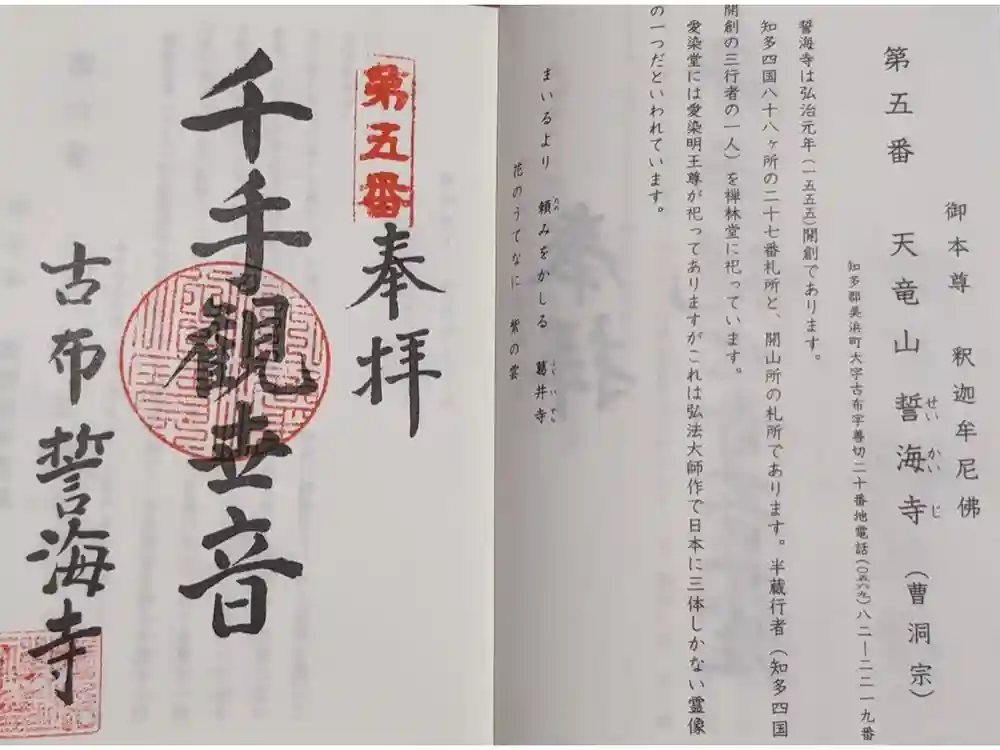 御本尊 釈迦牟尼佛
第五番 天竜山 誓海寺（曹洞宗）
せいかいじ
知多郡美浜町大字古布字善切二十番地電話（〇五六九）八二―二二一九番
誓海寺は弘治元年（一五五五）開創であります。
知多四国八十八ヶ所の二十七番札所と、開山所の札所であります。半蔵行者（知多四国
開創の三行者の一人）を禅林堂に祀っています。
愛染堂には愛染明王尊が祀ってありますがこれは弘法大師作で日本に三体しかない霊像
の一つだといわれています。
まいるより 頼みをかしる 葛井寺
花のうてなに 紫の雲
第五番
奉拝
千手観世音
古布 誓海寺